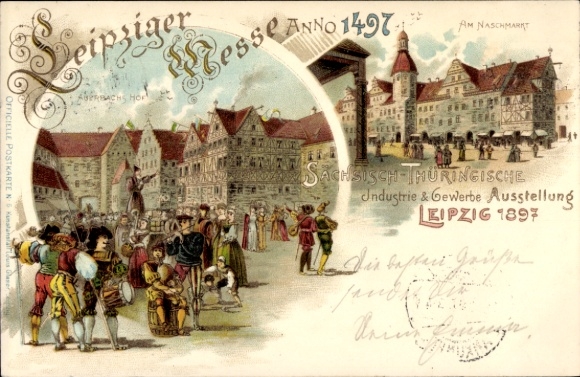 Leipziger Messe ANNO 1497
AM NASCHMARKT
AUERBACHS HOF
SÄCHSISCH-THÜRINGISCHE
Industrie & Gewerbe Ausstellung
LEIPZIG 1897
OFFICIELLE POSTKARTE N
Die besten Grüße
sendet Dir
Deine